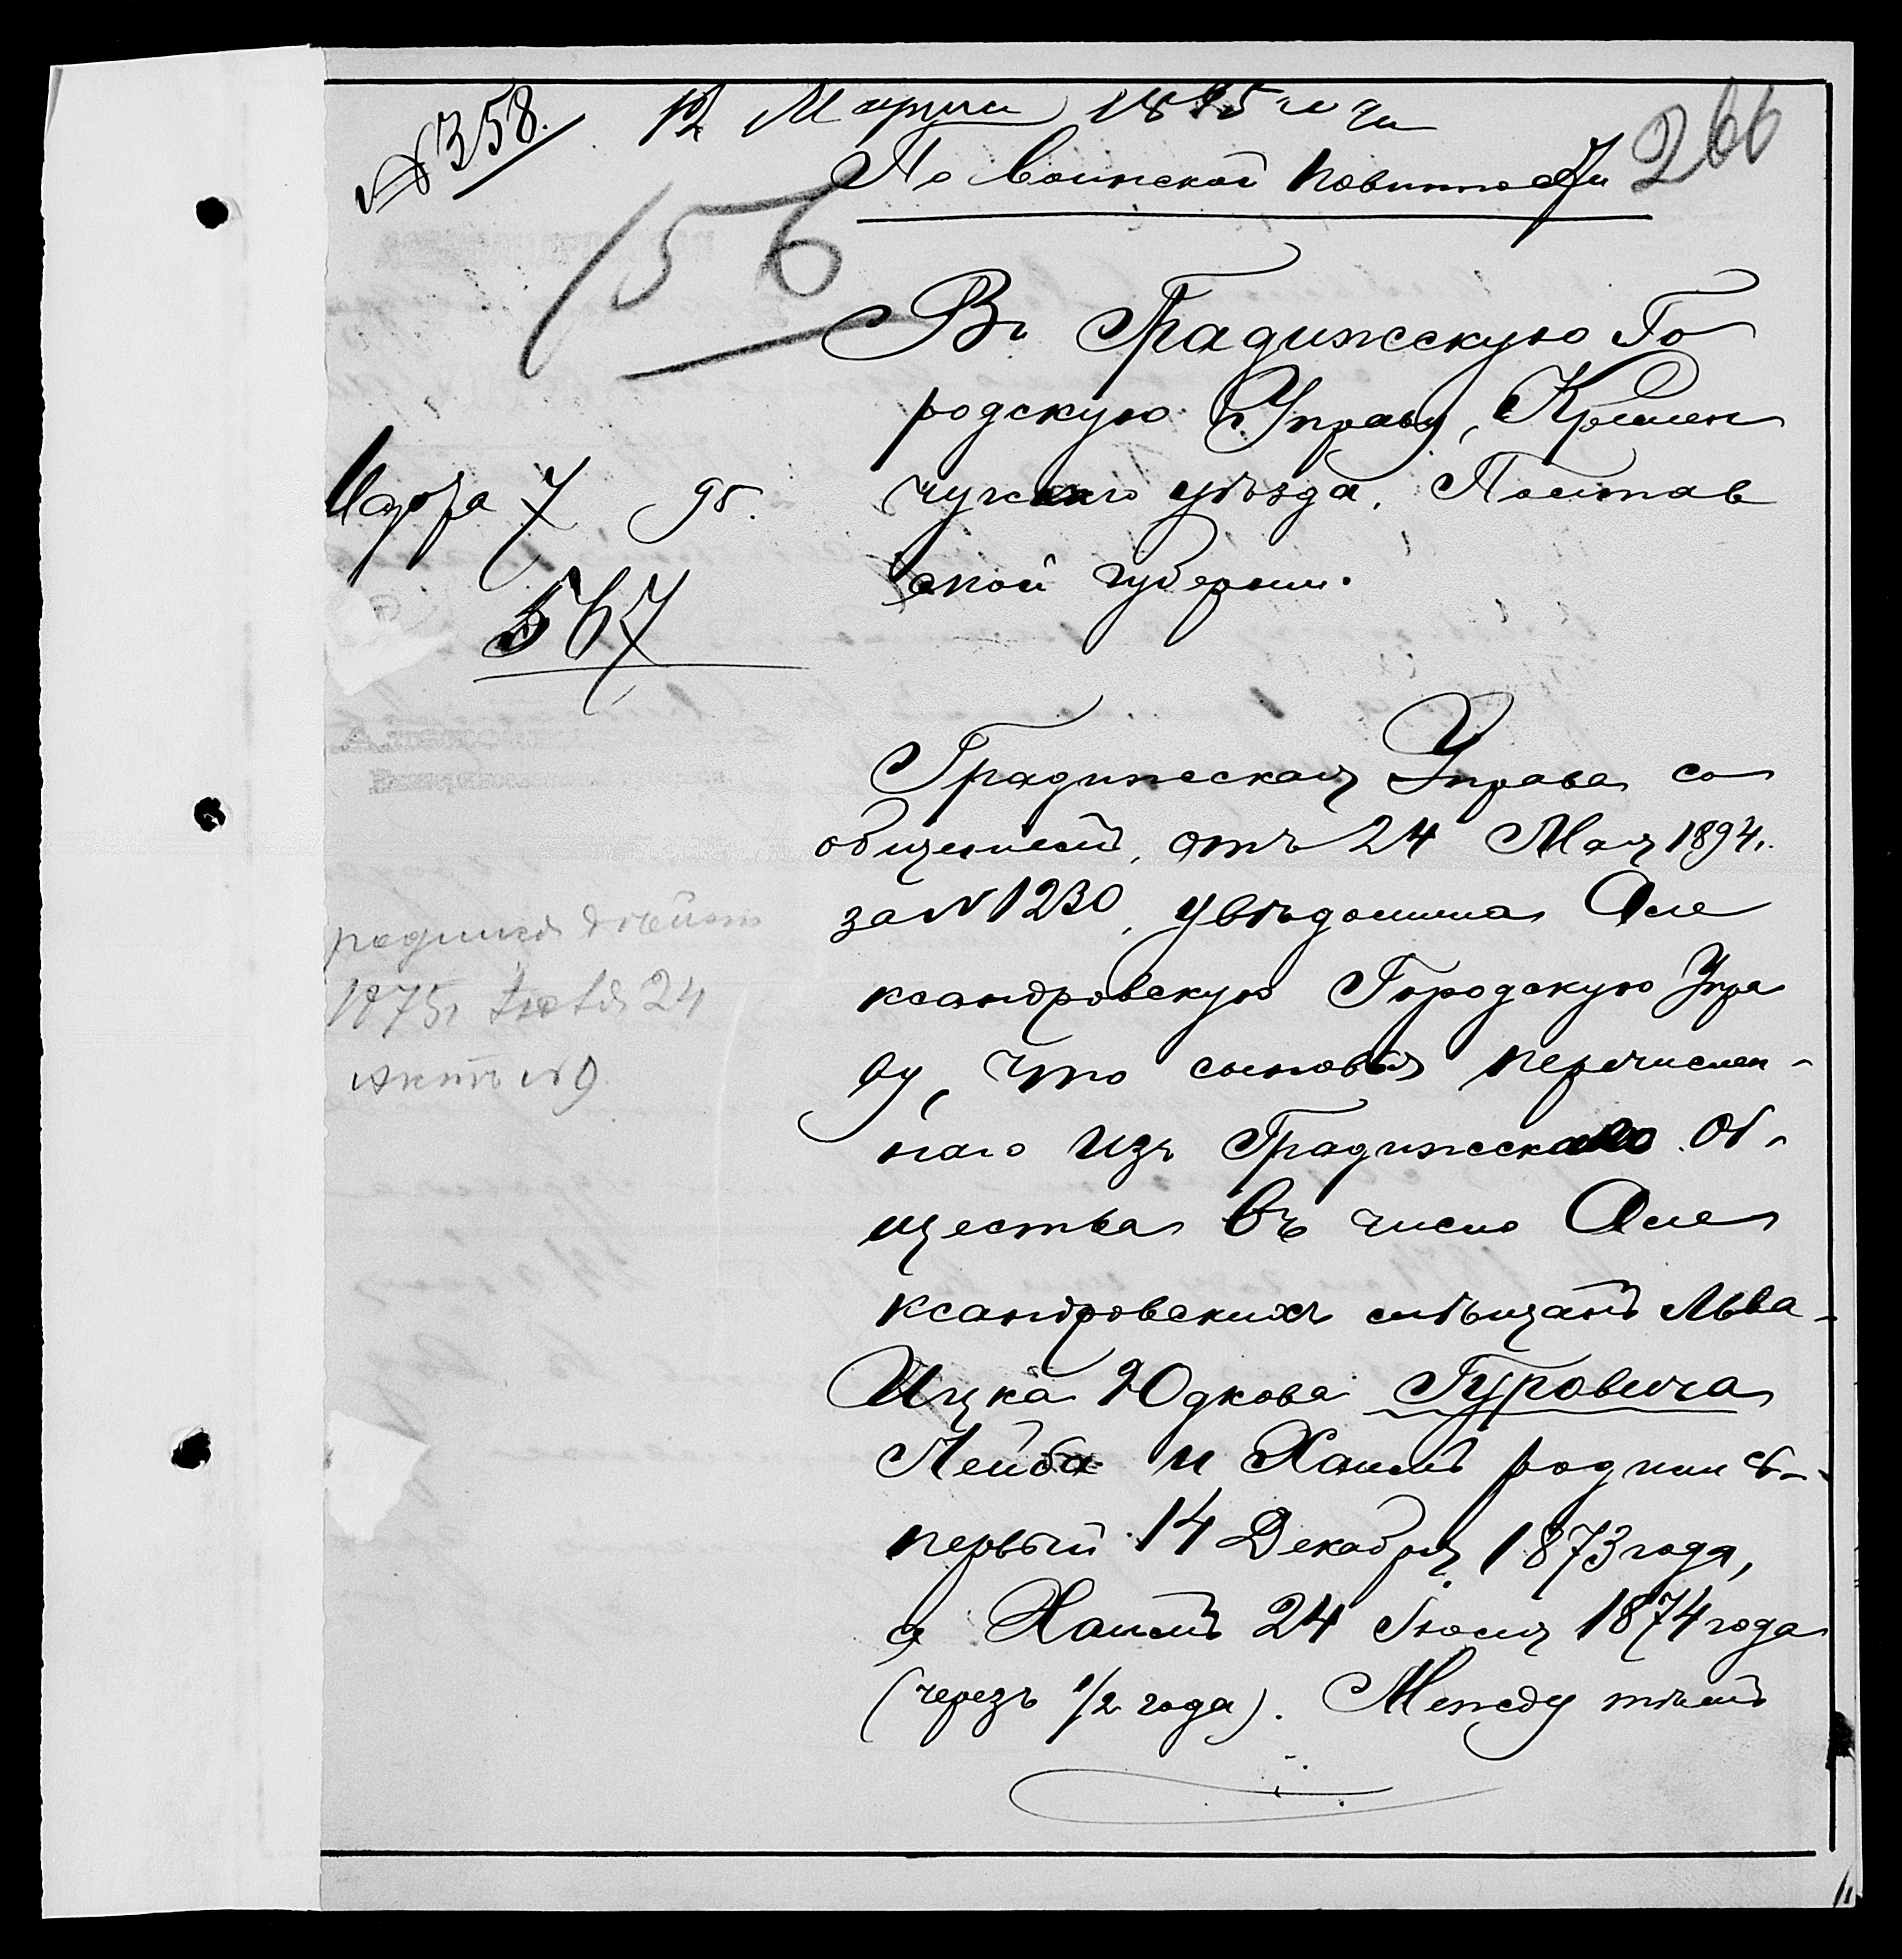 № 358. 12 Марта 1895 года
266
По воинской повинности
156
Въ Градижскую Го
родскую Управу, Кремен
чугскаго уѣзда, Полтав
ской губернiи.
Марта 7 95.
567
Градижская Управа со
общенiемъ, отъ 24 Мая 1894 г.
за № 1230, увѣдомила Але
ксандровскую Городскую Упра
ву, что сыновья перечислен-
наго изъ Градижскаго Об-
щества въ число Але
ксандровскихъ мѣщанъ Льва-
Ицка Юдкова Гуровича
Лейба и Хаимъ родились-
первый 14 Декабря 1873 года,
а Хаимъ 24 Iюля 1874 года
(черезъ 1/2 года). Между тѣмъ
родился
1875 г 24
Актъ № 9